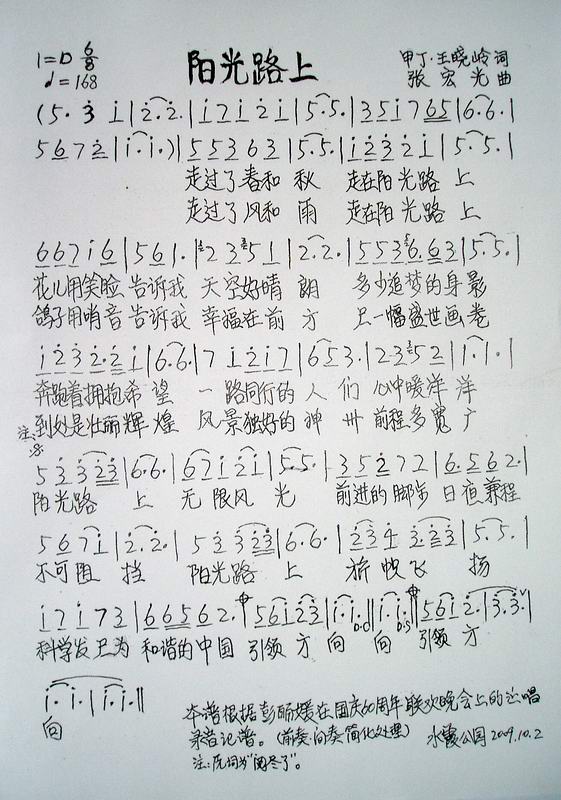 1=D 6/8
♩=168
阳光路上
甲丁·王晓岭词
张宏光曲
(5· 3 i|2·2·|i 7 i 2 i|5·5·|3 5 i 7 6 5|6·6·|
5 6 7 2|i·i·)|5 5 3 6 3|5·5·|i 2 3 2 i|5·5·|
走过了春和 秋 走在阳光路 上
走过了风和 雨 走在阳光路 上
6 6 7 i 6|5 6 1·|2 3 5 1|2·2·|5 5 3 6·6 3|5·5·|
花儿用笑脸 告诉我 天空好晴 朗 多少追梦的身 影
鸽子用哨音 告诉我 幸福在前 方 又一幅盛世画 卷
i 2 3 2·2 i|6·6·|7 i 2 i 7|6 5 3·|2 3 5 2|1·1·|
奔跑着拥抱希 望 一路同行的 人们 心中暖洋 洋
注:到处是壮丽辉 煌 风景独好的 神州 前程多宽 广
5 3 3 2 3|6·6·|6 7 i 2 i|5·5·|3 5 2 7 2|6·5 6 2·|
阳光路 上 无限风 光 前进的脚步 日夜兼程
5 6 7 i|2·2·|5 3 3 2 3|6·6·|2 3 4 3·2 3|5·5·|
不可阻 挡 阳光路 上 旗帜飞 扬
i 7 i 7 3|6 6 5 6 2·|5 6 i 2 3|i·i·‖i·i·‖5 6 i 2·|3·3·|
D.C D.S
科学发展为 和谐的中国 引领方 向 向 引领方
i·i·|i·i·‖
向
本谱根据彭丽媛在国庆60周年联欢晚会上的演唱
录音记谱。(前奏、间奏简化处理) 水霞公园 2009.10.2
注:原词为